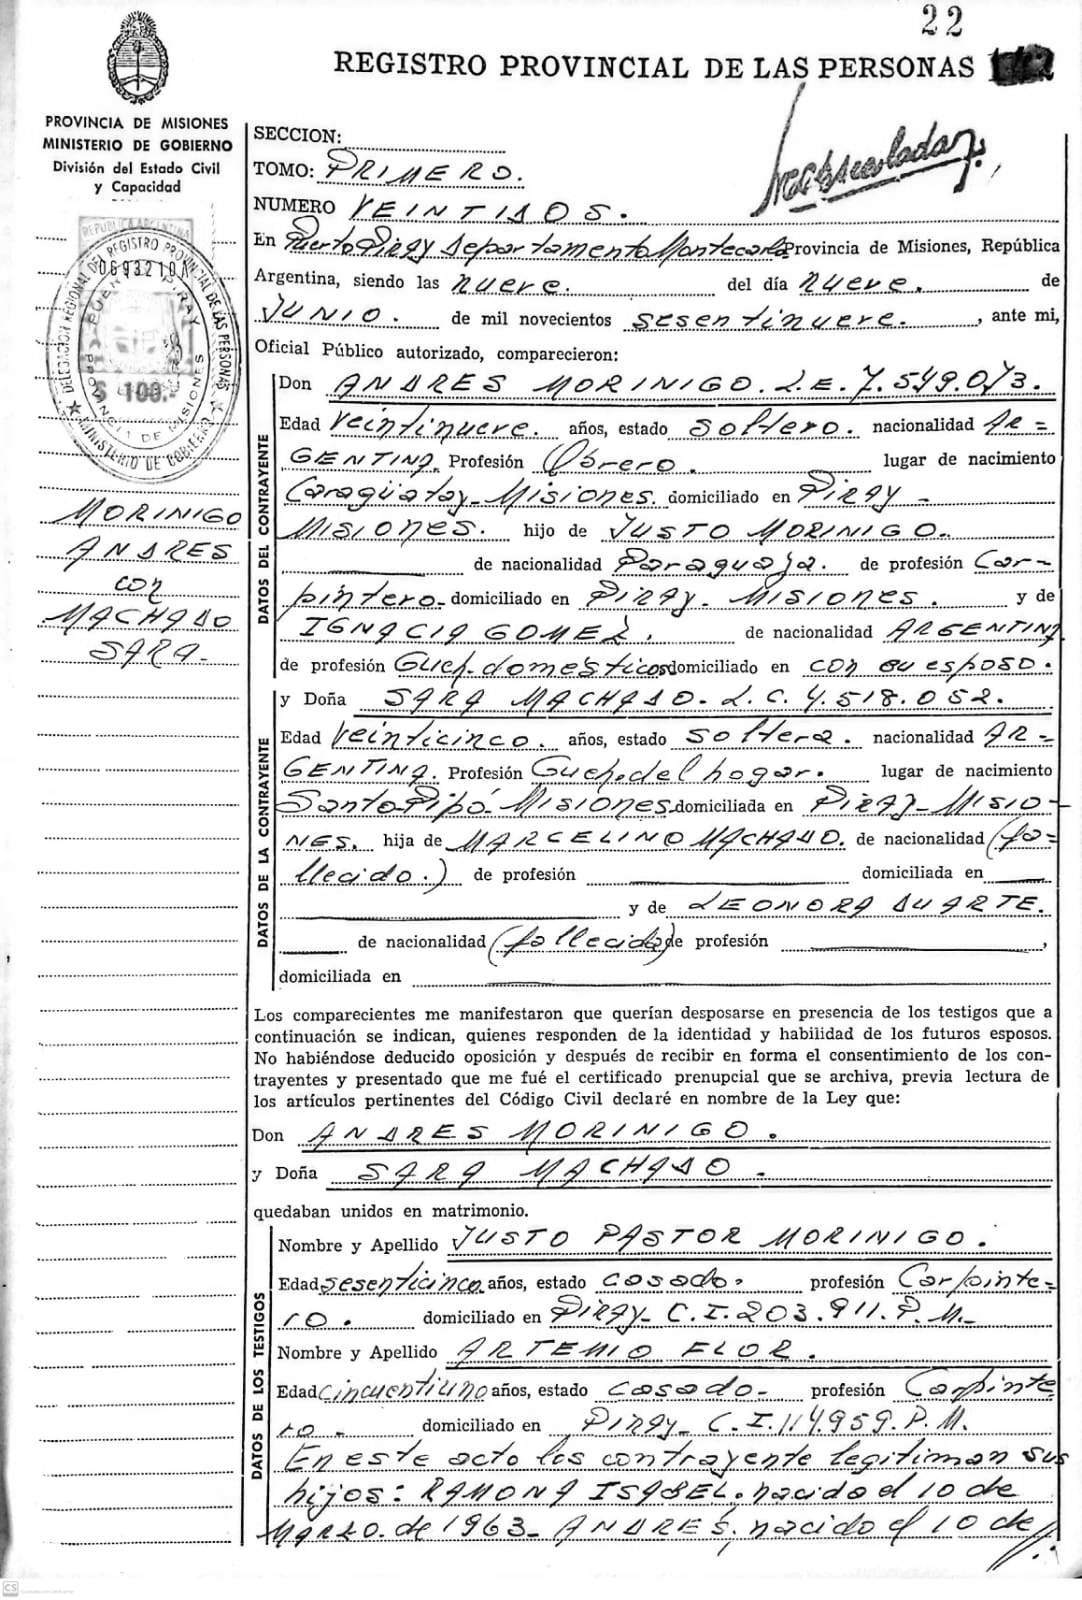 22
REGISTRO PROVINCIAL DE LAS PERSONAS
PROVINCIA DE MISIONES
MINISTERIO DE GOBIERNO
División del Estado Civil
y Capacidad
SECCION:
TOMO: PRIMERO.
NUMERO VEINTIDOS.
REPUBLICA ARGENTINA
DELEGACION REGIONAL DEL REGISTRO PROVINCIAL DE LAS PERSONAS
0693210A
PUERTO PIRAY
PROVINCIA DE MISIONES
$ 100.-
MINISTERIO DE GOBIERNO
En Puerto Piray Departamento Montecarlo Provincia de Misiones, República
Argentina, siendo las nueve. del día nueve. de
JUNIO. de mil novecientos sesentinueve. , ante mi,
Oficial Público autorizado, comparecieron:
DATOS DEL CONTRAYENTE
Don ANDRES MORINIGO. L.E. 7.549.073.
Edad Veintinueve. años, estado soltero. nacionalidad AR=
GENTINA. Profesión Obrero. lugar de nacimiento
Caraguatay-Misiones. domiciliado en PIRAY-
MISIONES. hijo de JUSTO MORINIGO.
de nacionalidad Paraguaya. de profesión Car-
pintero. domiciliado en PIRAY- MISIONES. y de
IGNACIA GOMEZ. de nacionalidad ARGENTINA
de profesión Queh.domésticos domiciliado en con su esposo.
MORINIGO
ANDRES
con
MACHADO
SARA-
DATOS DE LA CONTRAYENTE
y Doña SARA MACHADO. L.C. 4.518.052.
Edad Veinticinco. años, estado soltera. nacionalidad AR=
GENTINA. Profesión Queh.del hogar. lugar de nacimiento
Santo Pipó-Misiones. domiciliada en PIRAY-MISIO-
NES. hija de MARCELINO MACHADO. de nacionalidad (fa=
llecido.) de profesión domiciliado en
y de LEONORA DUARTE.
de nacionalidad (fallecida) de profesión ,
domiciliada en
Los comparecientes me manifestaron que querían desposarse en presencia de los testigos que a
continuación se indican, quienes responden de la identidad y habilidad de los futuros esposos.
No habiéndose deducido oposición y después de recibir en forma el consentimiento de los con-
trayentes y presentado que me fué el certificado prenupcial que se archiva, previa lectura de
los artículos pertinentes del Código Civil declaré en nombre de la Ley que:
Don ANDRES MORINIGO.
y Doña SARA MACHADO.
quedaban unidos en matrimonio.
DATOS DE LOS TESTIGOS
Nombre y Apellido JUSTO PASTOR MORINIGO.
Edad sesenticinco. años, estado casado. profesión Carpinte-
ro. domiciliado en PIRAY- C.I. 203.911. P.M.-
Nombre y Apellido ARTEMIO FLOR.
Edad cincuentiuno años, estado casado- profesión Carpinte
ro- domiciliado en PIRAY- C.I. 114.959. P.M.
En este acto los contrayente legitiman sus
hijos: RAMONA ISABEL. nacido el 10 de
MARZO. de 1963- ANDRES. nacido el 10 de